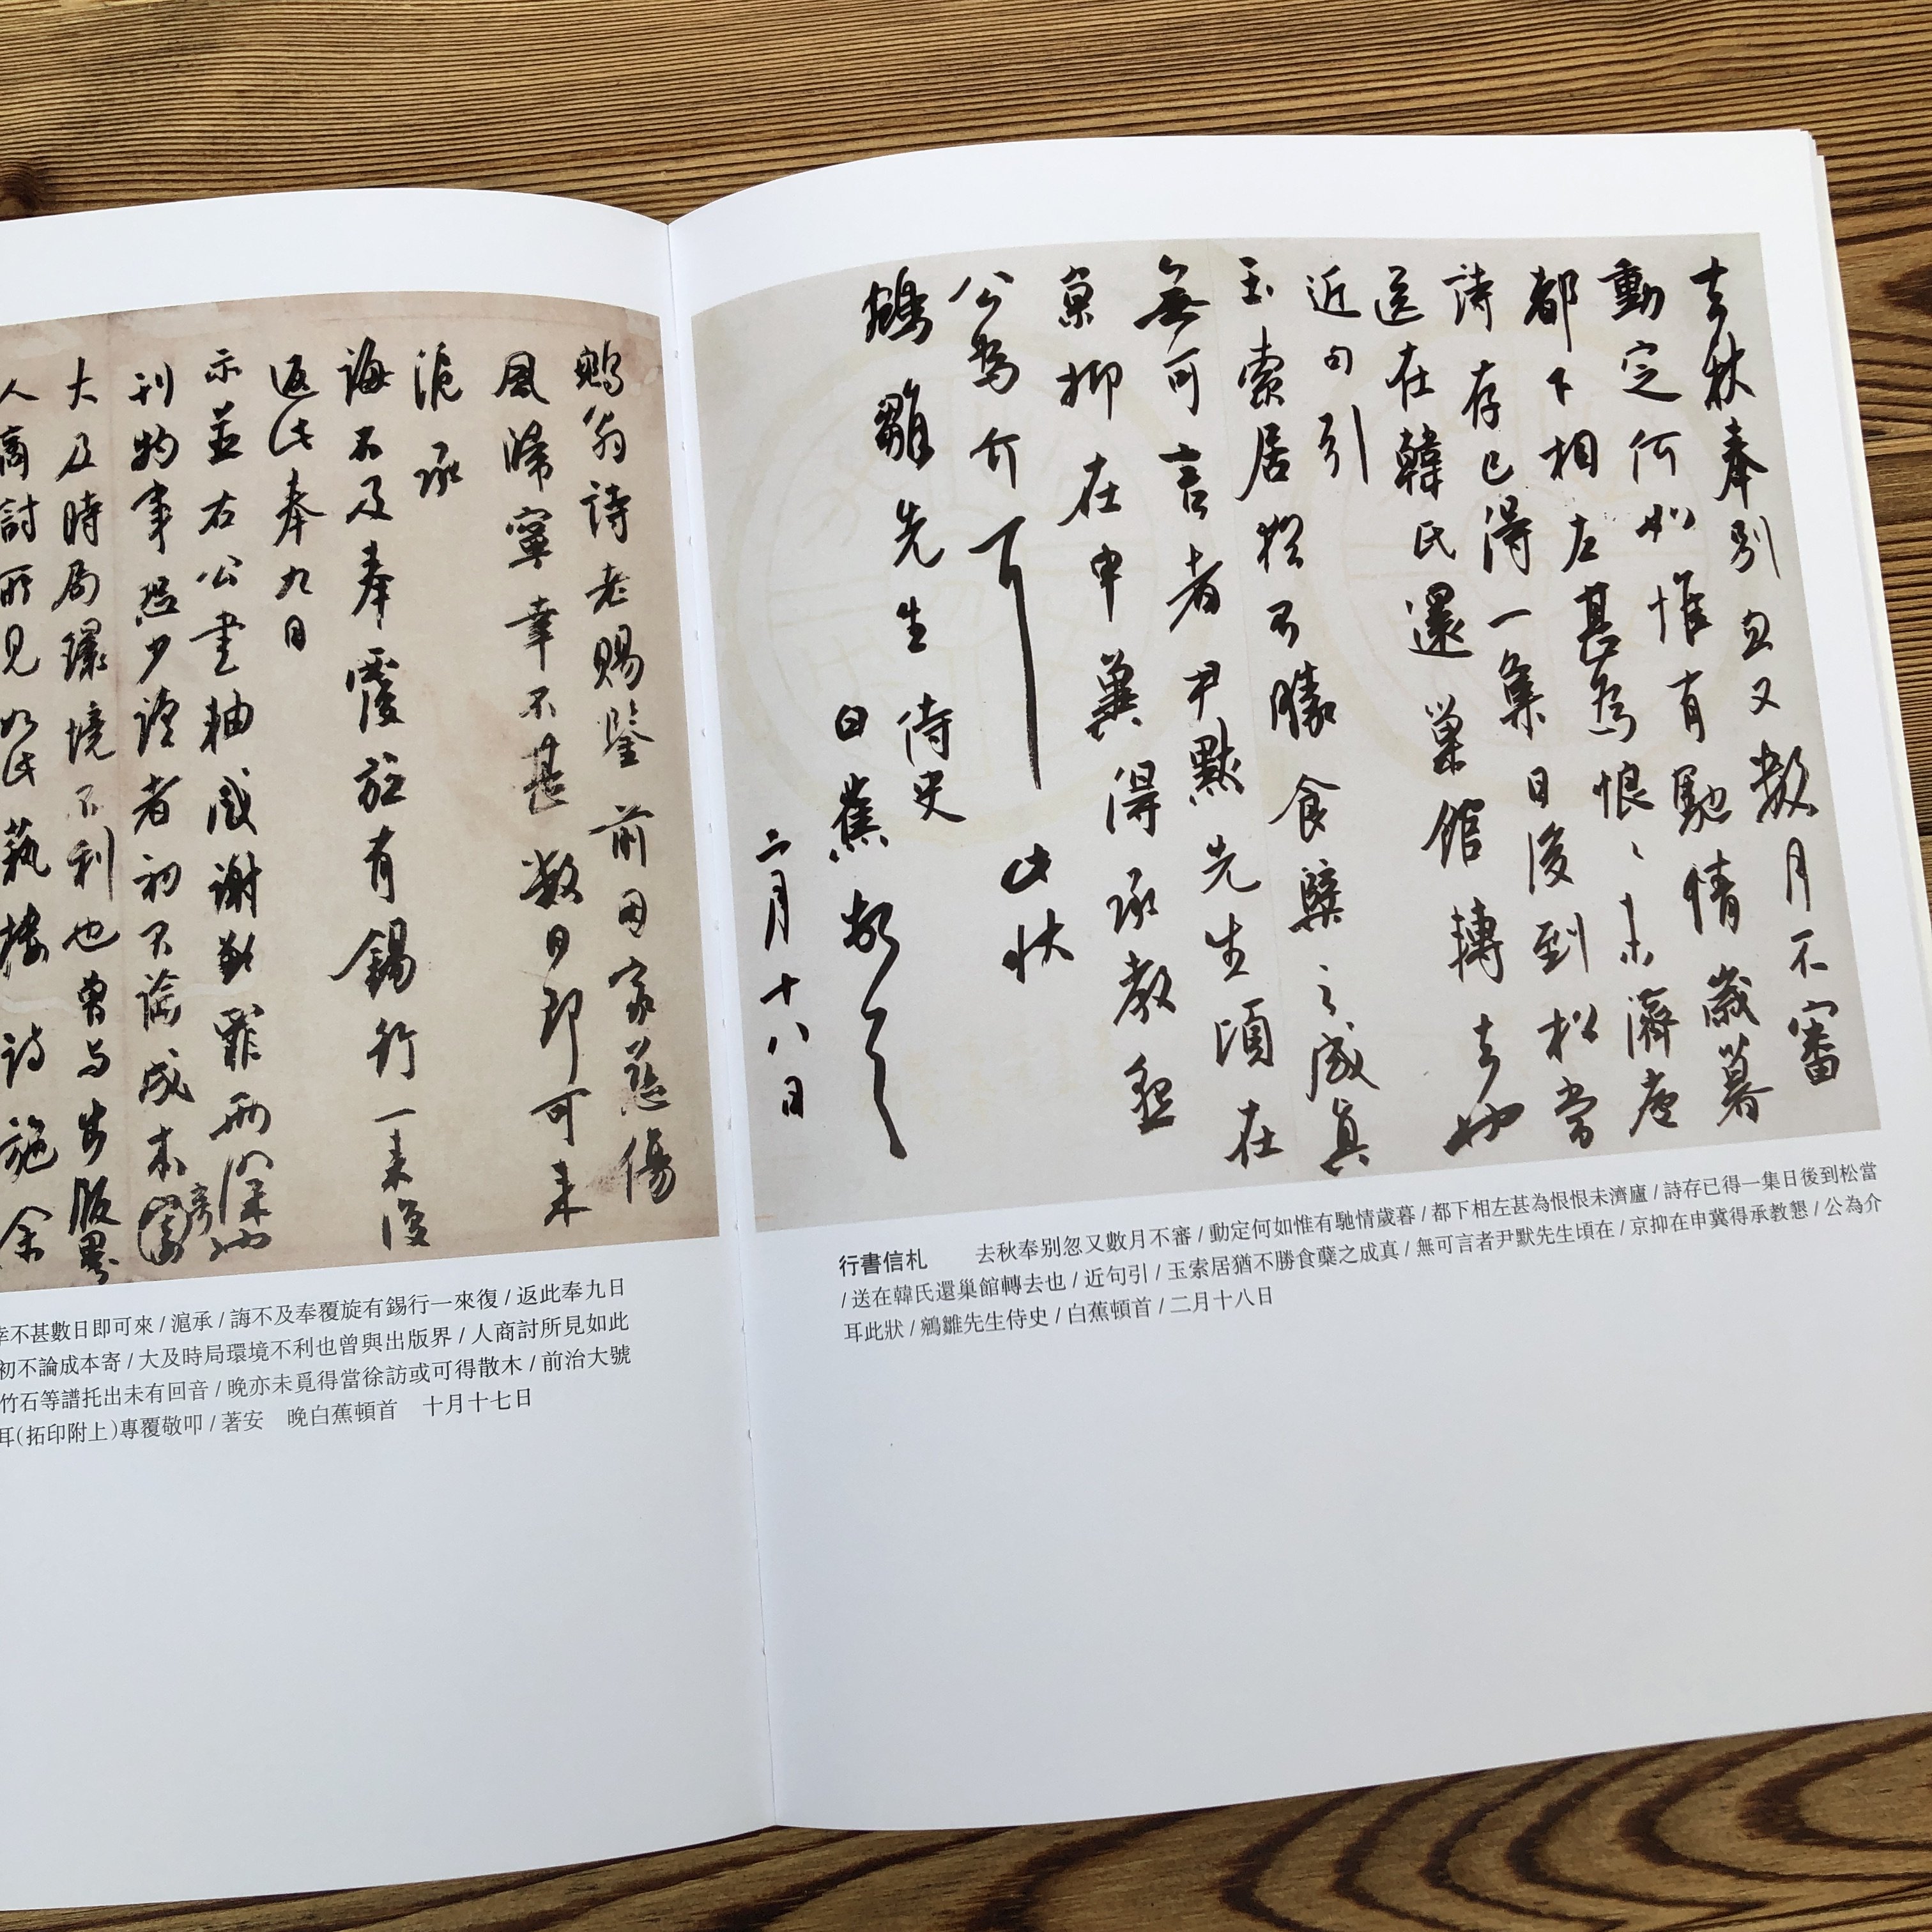 去秋奉別忽又數月不審
動定何如惟有馳情歲暮
都下相左甚為恨〻未濟廬
詩存已得一集日後到松當
送在韓氏還巢館轉去也
近句引
玉索居猶不勝食蘗之成真
無可言者尹默先生頃在
京抑在申冀得承教懇
公為介耳此狀
鵷雛先生侍史
白蕉頓首
二月十八日
行書信札 去秋奉別忽又數月不審/動定何如惟有馳情歲暮/都下相左甚為恨恨未濟廬/詩存已得一集日後到松當
/送在韓氏還巢館轉去也/近句引/玉索居猶不勝食蘗之成真/無可言者尹默先生頃在/京抑在申冀得承教懇/公為介
耳此狀/鵷雛先生侍史/白蕉頓首/二月十八日
鵷翁詩老賜鑒前因家慈傷
風歸寧幸不甚數日即可來
滬承
誨不及奉覆旋有錫行一來復
返此奉九日
示並右公書軸感謝
刊物事恐少讀者初不論成本
大及時局環境不利也曾与出版界
人商討所見如此
幸不甚數日即可來/滬承/誨不及奉覆旋有錫行一來復/返此奉九日
初不論成本寄/大及時局環境不利也曾與出版界/人商討所見如此
竹石等譜托出未有回音/晚亦未覓得當徐訪或可得散木/前治大號
耳(拓印附上)專覆敬叩/著安 晚白蕉頓首 十月十七日